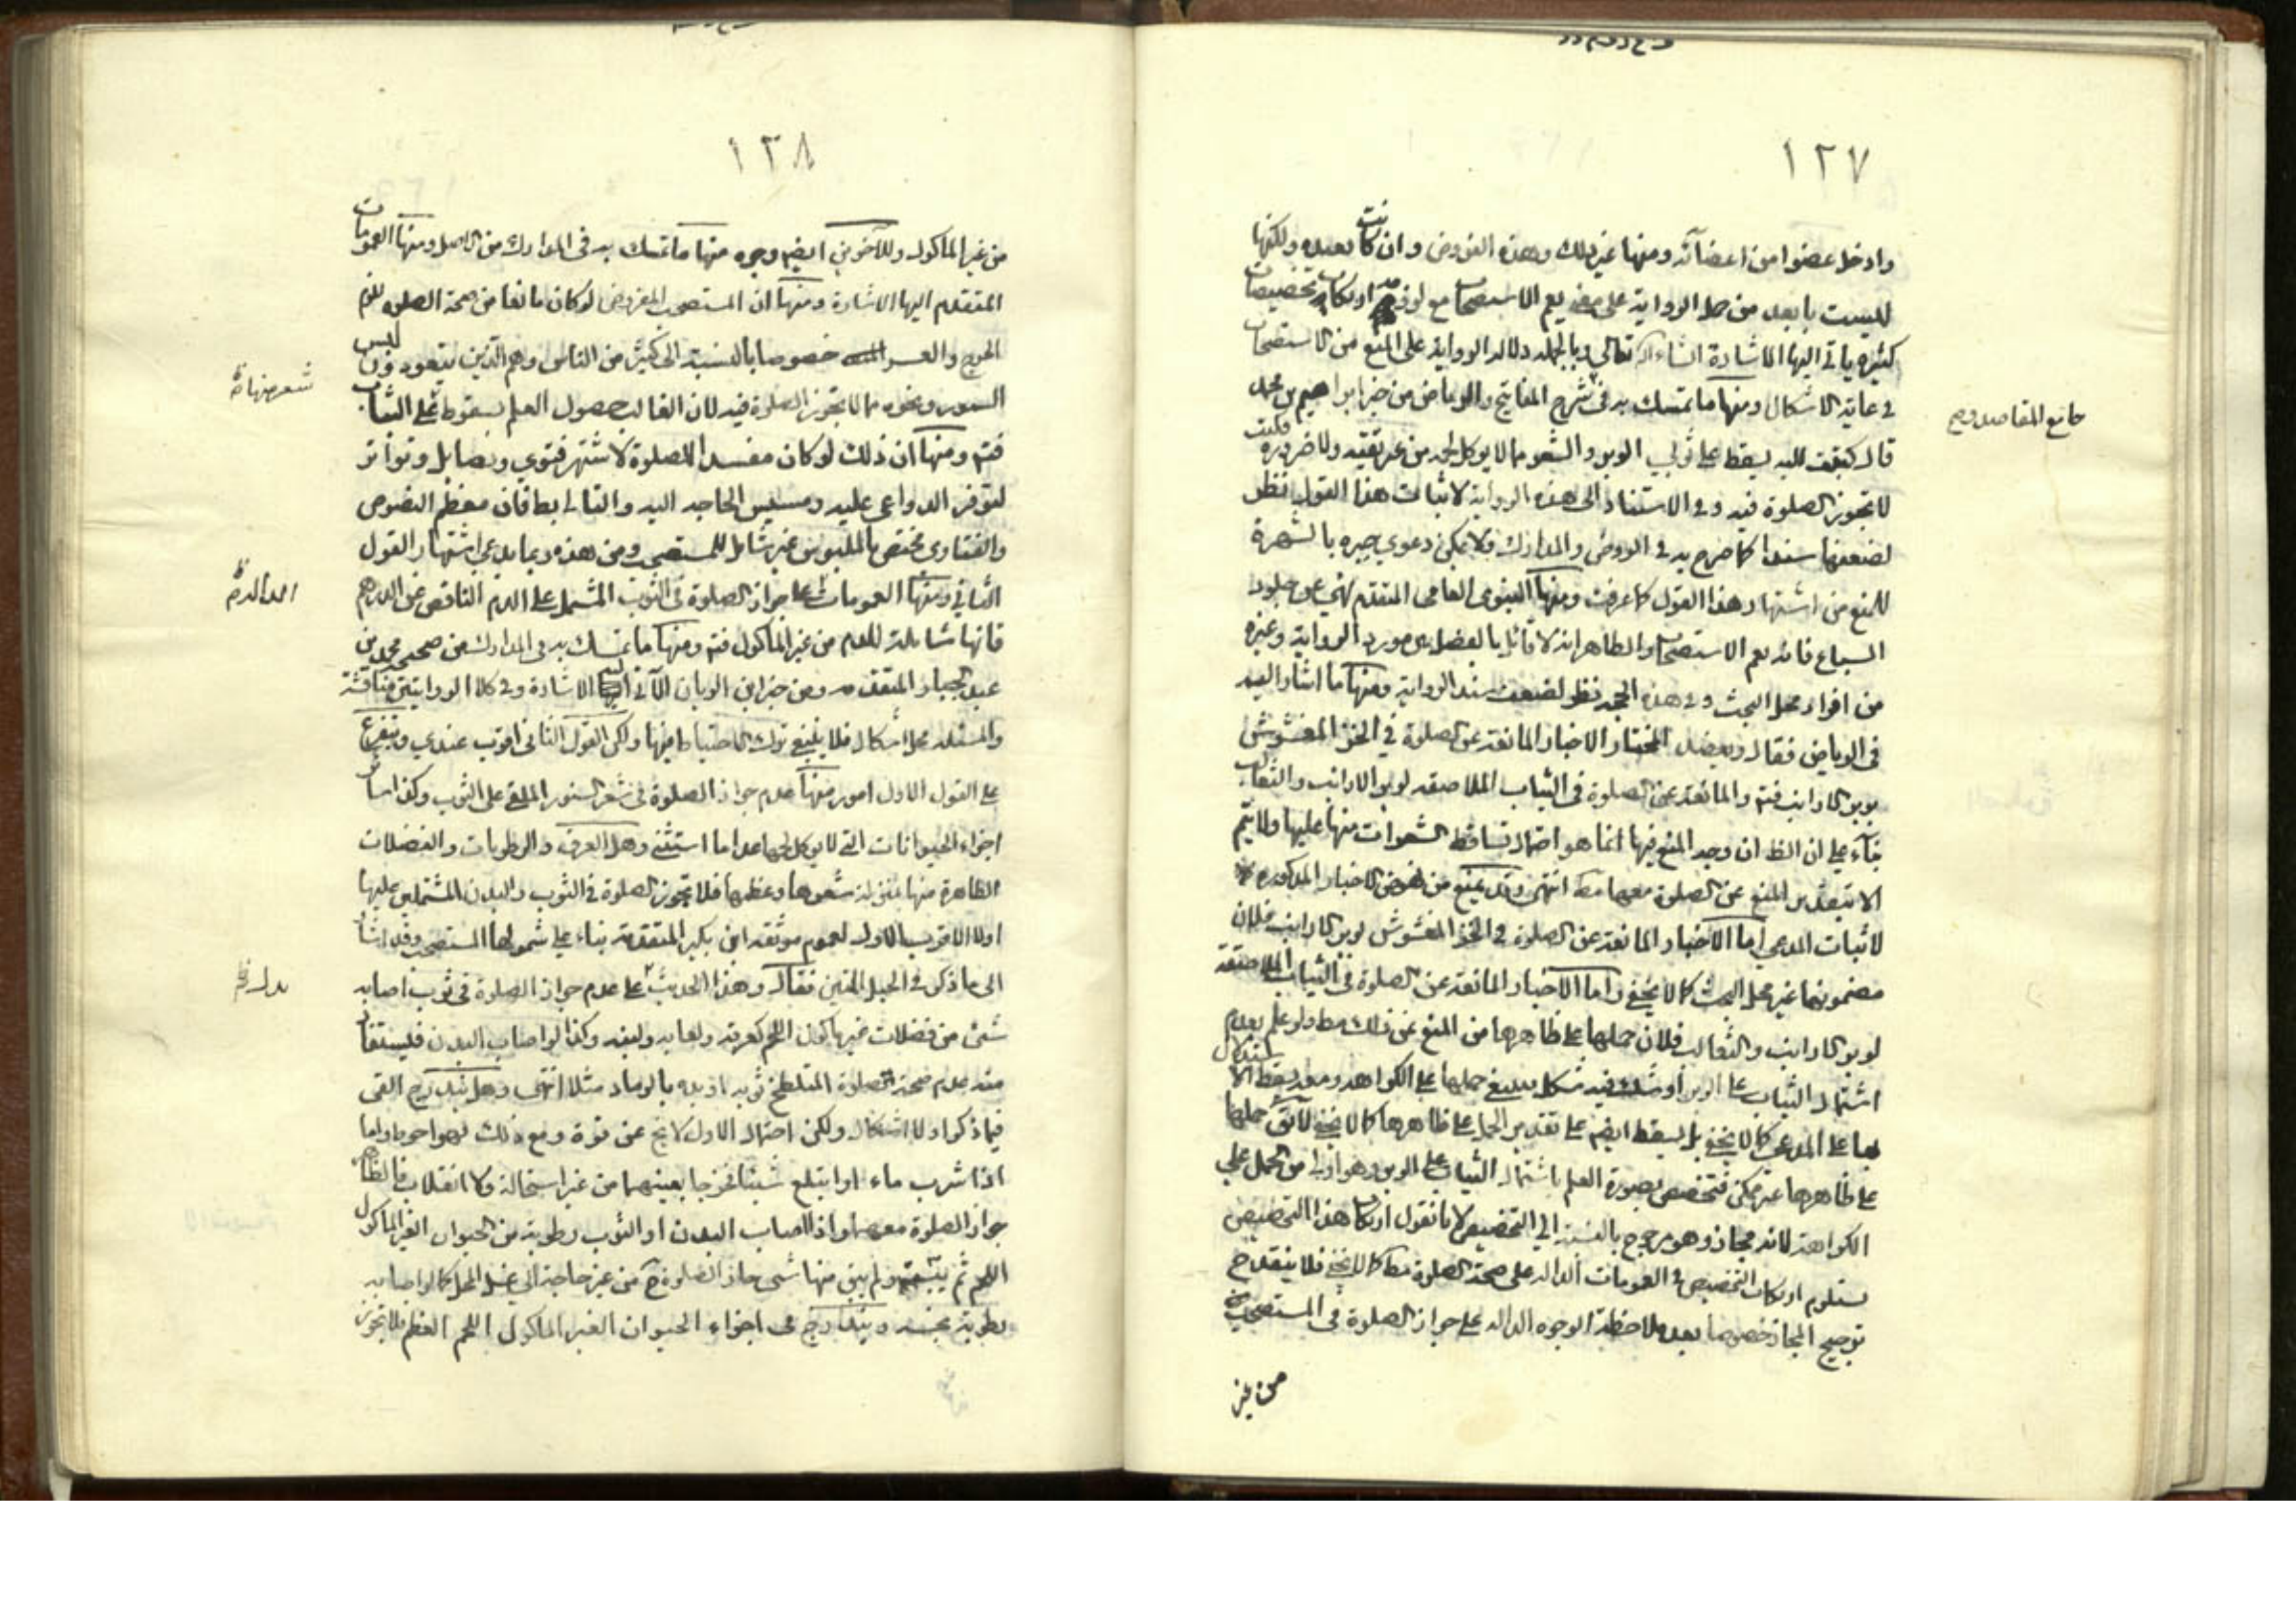 ١٢٧
وادخل عضوا من اعضائه ومنها غير ذلك وهذه الفروض وان كانت بعيدة ولكنها
ليست بابعد من حمل الرواية على يعم الاستصحاب مع ارتكاب تخصيصات
كثيرة ياتى اليها الاشارة انشاء الله تعالى وبالجملة دلالة الرواية على المنع من الاستصحاب
فى غاية الاشكال ومنها ما تمسك به فى شرح المفاتيح والرياض من خبر ابراهيم بن محمد
جامع المقاصد و
قال كتبت اليه يسقط على ثوبى الوبر والشعر مما لا يوكل لحمه من غير تقية ولا ضرورة فكتب
لا تجوز الصلوة فيه وفى الاستناد الى هذه الرواية لاثبات هذا القول نظر
لضعفها سندا كما صرح به فى الروض والمدارك ولا يمكن دعوى جبره بالشهرة
للمنع من اشتهار هذا القول كما عرفت ومنها النبوى العامى المتقدم نهى عن جلود
السباع فانه يعم الاستصحاب والظاهر انه لا قائل بالفصل بين مورد الرواية وغيره
من افراد محل البحث وفى هذه الحجة نظر لضعف سند الرواية ومنها ما اشار اليه
فى الرياض فقال ويعضد المختار الاخبار المانعة عن الصلوة فى الخز المغشوش
بوبر الارانب فتم والمانعة عن الصلوة فى الثياب الملاصقة لوبر الارانب والثعالب
بناء على ان الظ ان وجه المنع فيها انما هو احتمال تساقط الشعرات منها عليها ولا يتم
الا بتقدير المنع عن الصلوة معها مط انتهى وقد يمنع من نهوض الاخبار المذكورة
لاثبات المدعى اما الاخبار المانعة عن الصلوة فى الخز المغشوش لوبر الارانب فلان
مضمونها غير محل البحث كما لا يخفى واما الاخبار المانعة عن الصلوة فى الثياب الملاصقة
لوبر الارانب والثعالب فلان حملها على ظاهرها من المنع عن ذلك مط ولو علم بعدم
اشتمال الثياب على الوبر او شك فيه مشكل بل ينبغى حملها على الكراهة ومعه يسقط الاستدلال
بها على المدعى كما لا يخفى بل يسقط ايضم على تقدير الحمل على ظاهرها كما لا يخفى لا يق حملها
على ظاهرها غير ممكن فتخصص بصورة العلم باشتمال الثياب على الوبر وهو اولى من الحمل على
الكراهة لانه مجاز وهو مرجوح بالنسبة الى التخصيص لانا نقول ارتكاب هذا التخصيص
يستلزم ارتكاب التخصيص فى العمومات الدالة على صحة الصلوة مط كما لا يخفى فلا ينقدح
ترجيح المجاز خصوصا بعد ملاحظة الوجوه الدالة على جواز الصلوة فى المستصحب
من غير
١٢٨
من غير الماكول وللاخرين ايضم وجوه منها ما تمسك به فى المدارك من الاصل ومنها العمومات
المتقدم اليها الاشارة ومنها ان المستصحب المفروض لو كان مانعا من صحة الصلوة للزم
الحرج والعسر خصوصا بالنسبة الى كثير من الناس وهم الذين يتعودون لبس
السمور ونحوه مما لا تجوز الصلوة فيه لان الغالب حصول العلم بسقوط على الثياب
شعر منها
فتم ومنها ان ذلك لو كان مفسدا للصلوة لاشتهر فتوى ونصا بل وتواتر
لتوفر الدواعى عليه ومسيس الحاجة اليه والتالى بط فان معظم النصوص
والفتاوى مختص بالملبوس غير شامل للمستصحب ومن هذه ربما يدعى اشتهار القول
الثانى ومنها العمومات على جواز الصلوة فى الثوب المشتمل على الدم الناقص عن الدرهم
الدالة
فانها شاملة للدم من غير الماكول فتم ومنها ما تمسك به فى المدارك من صحيح محمد بن
عبد الجبار المتقدمة ومن خبر ابن الريان الآتى اليها الاشارة وفى كلا الروايتين مناقشة
والمسئلة محل اشكال فلا ينبغى ترك الاحتياط فيها ولكن القول الثانى اقرب عندى ويتفرع
على القول الاول امور منها عدم جواز الصلوة فى شعر السنور الملقى على الثوب وكذا سائر
اجزاء الحيوانات التى لا يوكل لحمها عدا ما استثنى وهل العرق والرطوبات والفضلات
الطاهرة منها بمنزلة شعرها وعظمها فلا تجوز الصلوة فى الثوب والبدن المشتملين عليها
او لا الاقرب الاول لعموم موثقة ابن بكير المتقدمة بناء على شمولها المستصحب وقد اشار
الى ما ذكر فى الحبل المتين فقال وهذا الحديث على عدم جواز الصلوة فى ثوب اصابه
يدل
شئ من فضلات غير ماكول اللحم كعرقه ولعابه ولبنه وكذا لو اصاب البدن فليستفاد
منه عدم صحة الصلوة المتلطخ ثوبه او بدنه بالرماد مثلا انتهى وهل يندرج القى
فيما ذكر او لا اشكال ولكن احتمال الاول لا يخ عن قوة ومع ذلك فهو احوط واما
اذا شرب ماء او ابتلع شيئا فخرجا بعينهما من غير استحالة ولا انقلاب فالظاهر
جواز الصلوة معهما واذا اصاب البدن او الثوب رطوبة من الحيوان الغير الماكول
اللحم ثم يبست ولم يبق منها شئ جاز الصلوة ح من غير حاجة الى غسل المحل كما لو اصابه
رطوبة نجسة ويندرج فى اجزاء الحيوان الغير الماكول اللحم العظم فلا تجوز